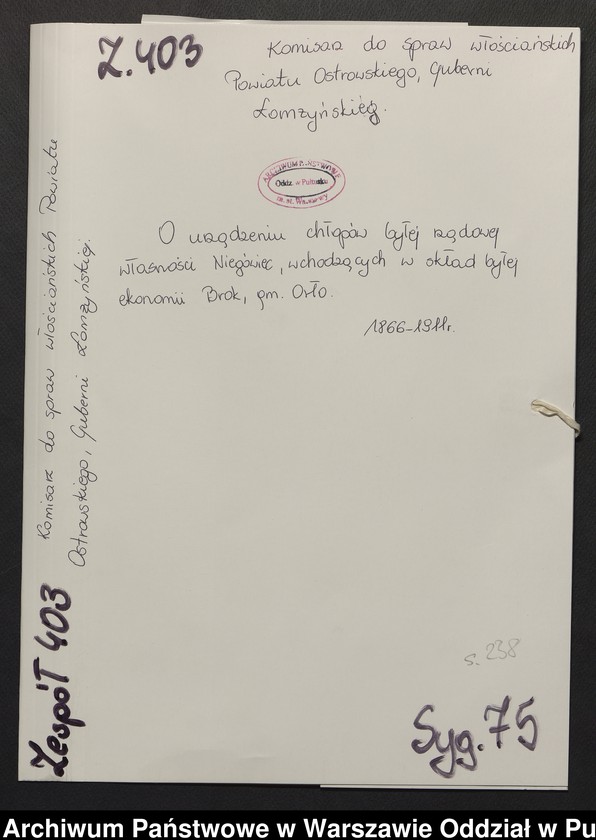 Z.403
Komisarz do spraw włościańskich
Powiatu Ostrowskiego, Guberni
Łomżyńskiej.
ARCHIWUM PAŃSTWOWE
Oddz. w Pułtusku
m. st. Warszawy
O urządzeniu chłopów byłej rządowej
własności Niegówiec, wchodzących w skład byłej
ekonomii Brok, gm. Orło.
1866-1911r.
Komisarz do spraw włościańskich Powiatu
Ostrowskiego, Guberni Łomżyńskiej.
Zespół 403
s. 238
Syg. 75
Archiwum Państwowe w Warszawie Oddział w Pu